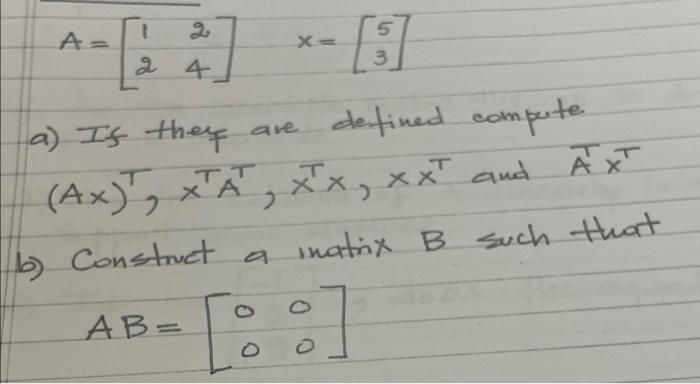 A = [1 2 2 4] x = [5 3]
a) If they are defined compute
(Ax)ᵀ, xᵀAᵀ, xᵀx, xxᵀ and Aᵀxᵀ
b) Construct a matrix B such that
AB = [0 0 0 0]